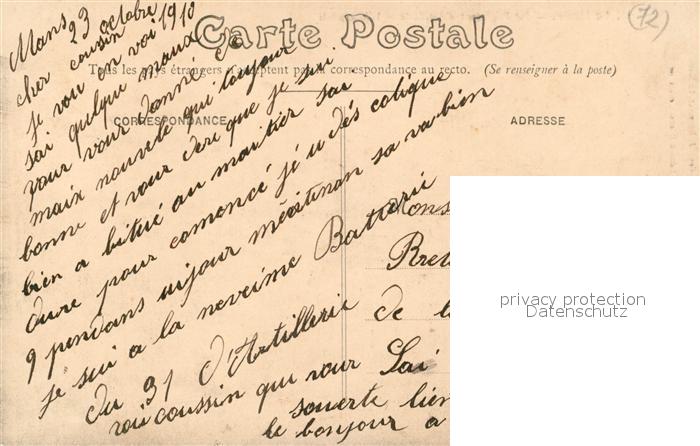 Carte Postale
(72)
Tous les pays étrangers n'acceptent pas la correspondance au recto. (Se renseigner à la poste)
CORRESPONDANCE
ADRESSE
Mans 23 octobre 1910
cher coussin
je vou en voi
sai quelque maux
pour vour donné de
maix nouvele qui toujour
bonne et vour dere que je sui
bien a bitué au maitier sai
dure pour comencé jé u dés colique
9 pendans aujour sa va bien
je sui a la neveime Batterie
du 31 d'Artillerie
coussin qui vour
souerte bien
le bonjour a
Mons
de l
privacy protection
Datenschutz